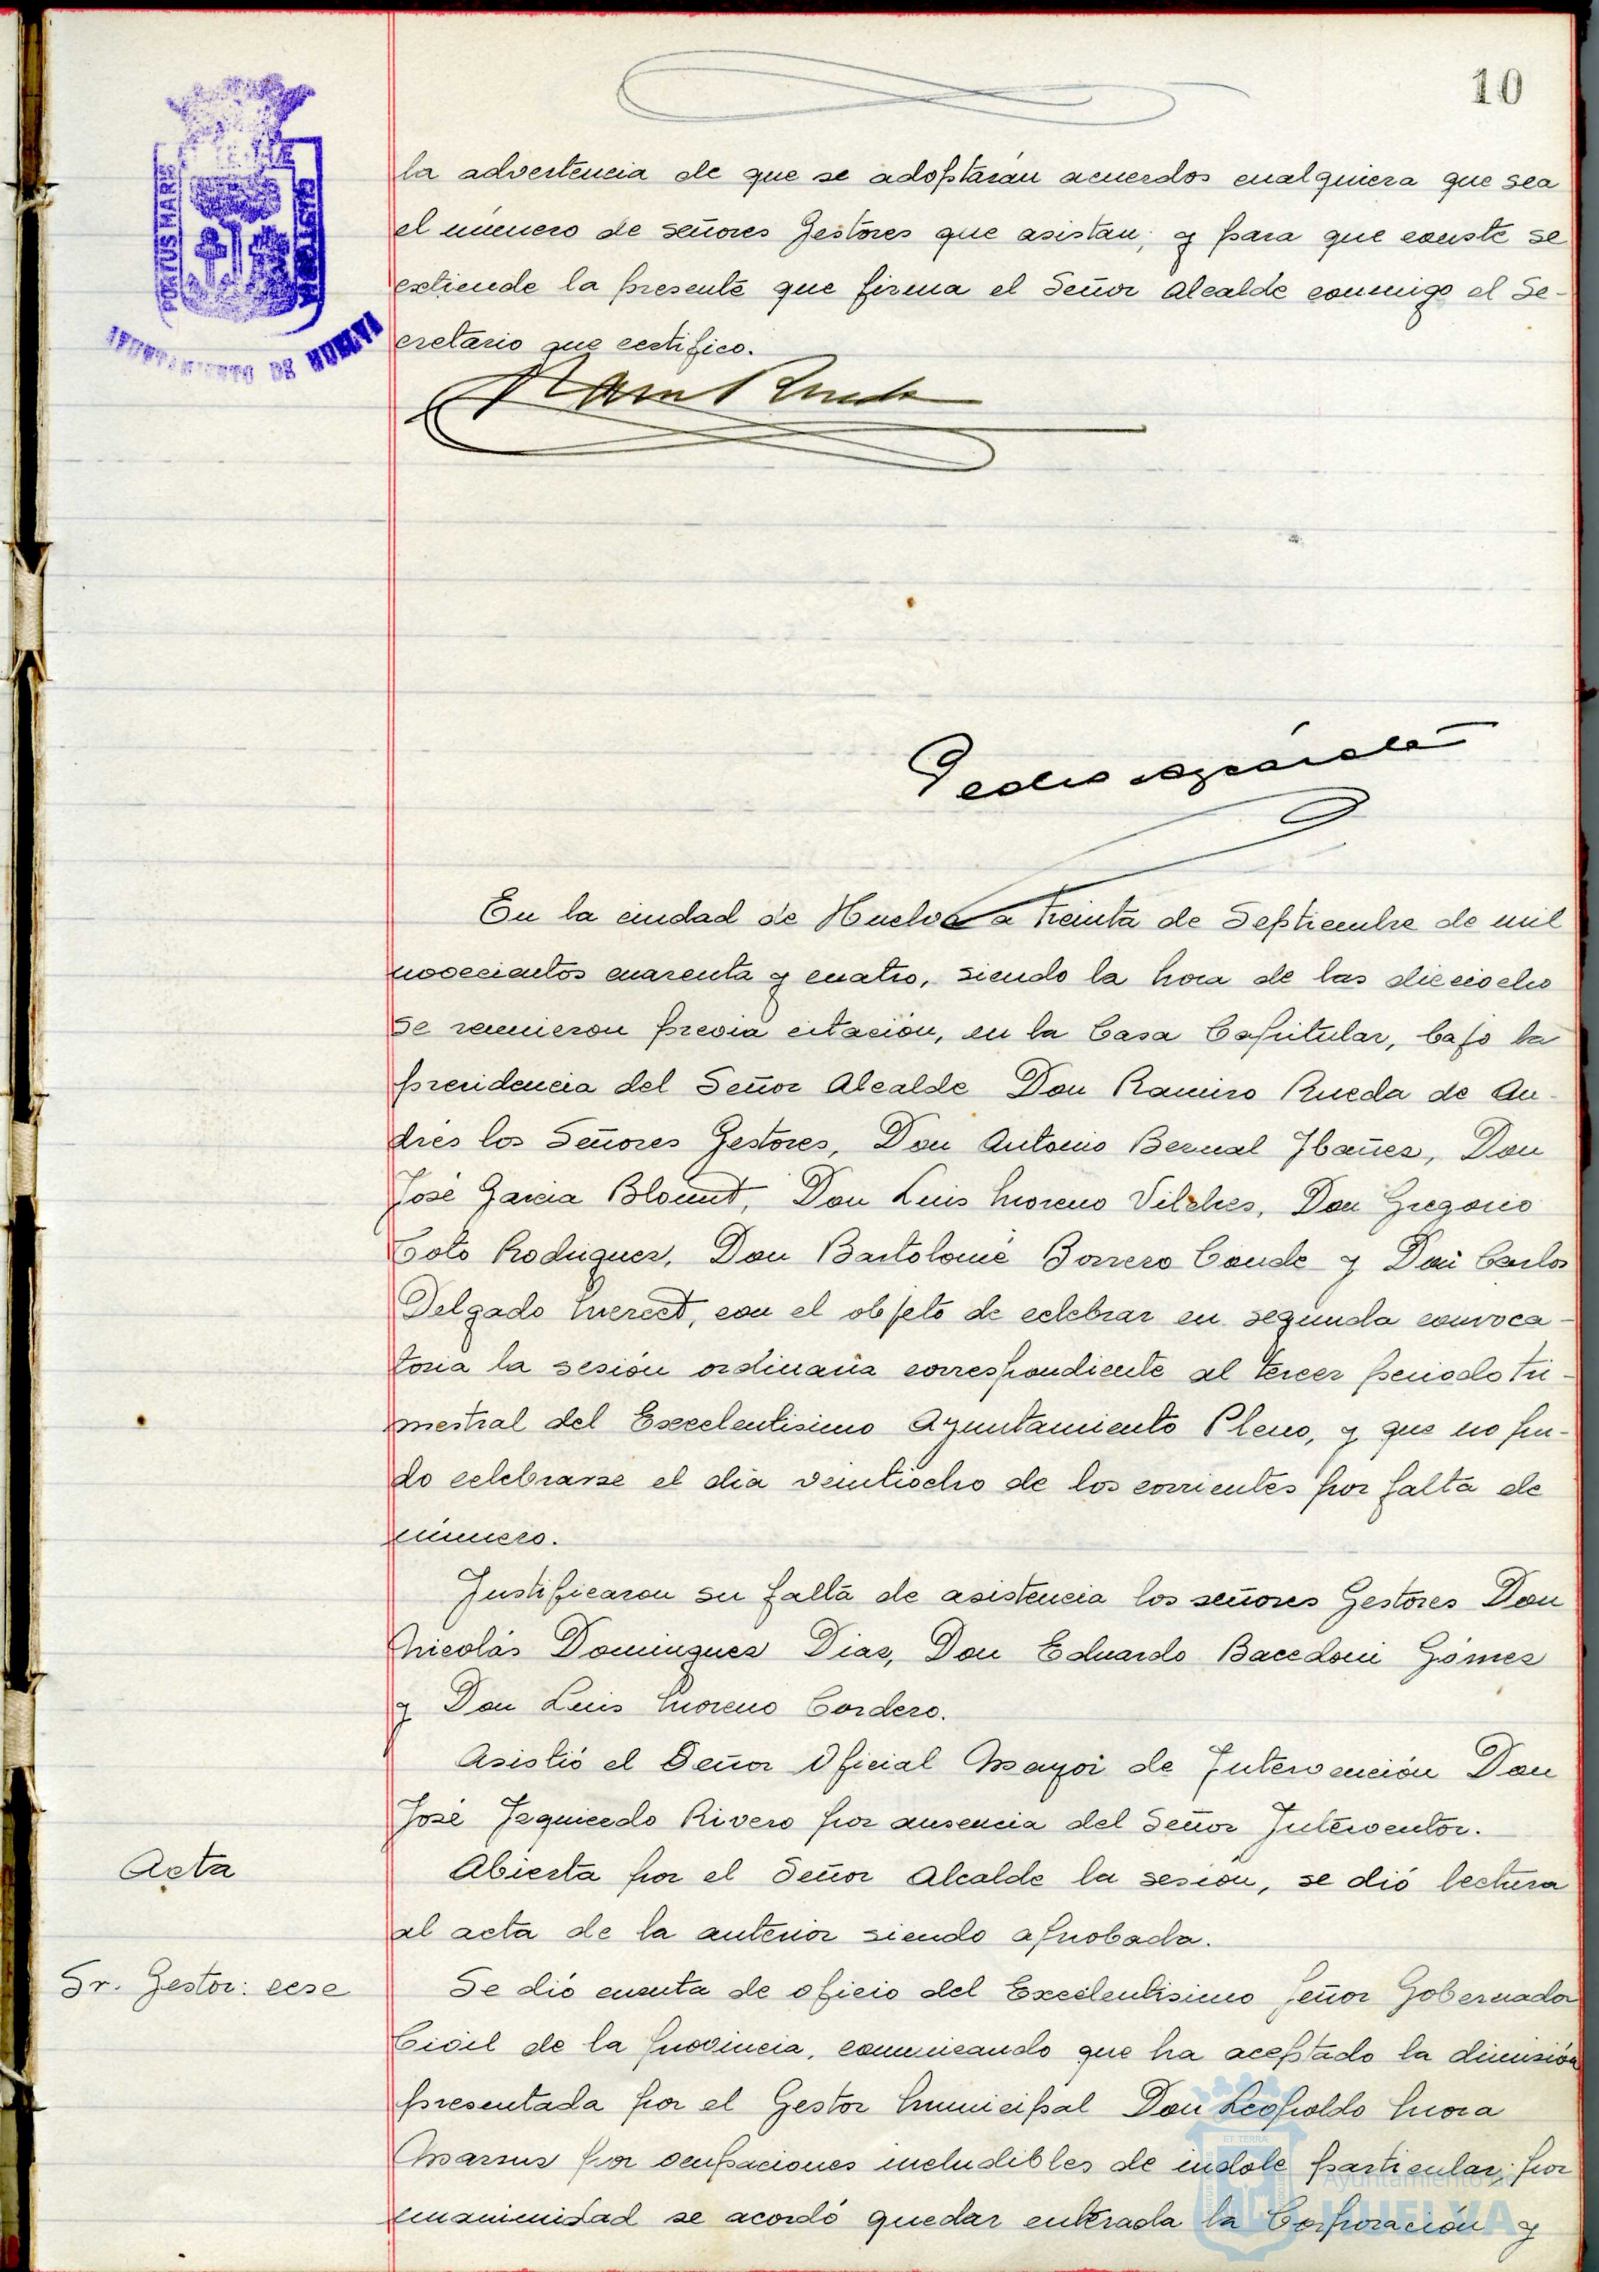 10
PORTUS MARIS
ET TERRAE
CUSTODIA
AYUNTAMIENTO DE HUELVA
la advertencia de que se adoptarán acuerdos cualquiera que sea
el número de señores Gestores que asistan; y para que conste se
extiende la presente que firma el Señor Alcalde conmigo el Se-
cretario que certifico.
Ram Rueda
Pedro
En la ciudad de Huelva a treinta de Septiembre de mil
novecientos cuarenta y cuatro, siendo la hora de las dieciocho
se reunieron previa citación, en la Casa Capitular, bajo la
presidencia del Señor Alcalde Don Ramiro Rueda de An-
drés los Señores Gestores, Don Antonio Bernal Ibañez, Don
José Garcia Blount, Don Luis Moreno Vilches, Don Gregorio
Coto Rodriguez, Don Bartolomé Borrero Conde y Don Carlos
Delgado Merect, con el objeto de celebrar en segunda convoca-
toria la sesión ordinaria correspondiente al tercer periodo tri-
mestral del Excelentisimo Ayuntamiento Pleno, y que no pu-
do celebrarse el dia veintiocho de los corrientes por falta de
número.
Justificaron su falta de asistencia los señores Gestores Don
Nicolás Dominguez Diaz, Don Eduardo Bacedoni Gómez
y Don Luis Moreno Cordero.
Asistió el Señor Oficial Mayor de Intervención Don
José Izquierdo Rivero por ausencia del Señor Interventor.
Acta
Abierta por el Señor Alcalde la sesión, se dió lectura
al acta de la anterior siendo aprobada.
Sr. Gestor: cese
Se dió cuenta de oficio del Excelentisimo Señor Gobernador
Civil de la provincia, comunicando que ha aceptado la dimisión
presentada por el Gestor Municipal Don Leopoldo Mora
por ocupaciones ineludibles de indole particular; por
unanimidad se acordó quedar enterada la Corporación y
ET TERRA
Ayuntamiento
HUELVA